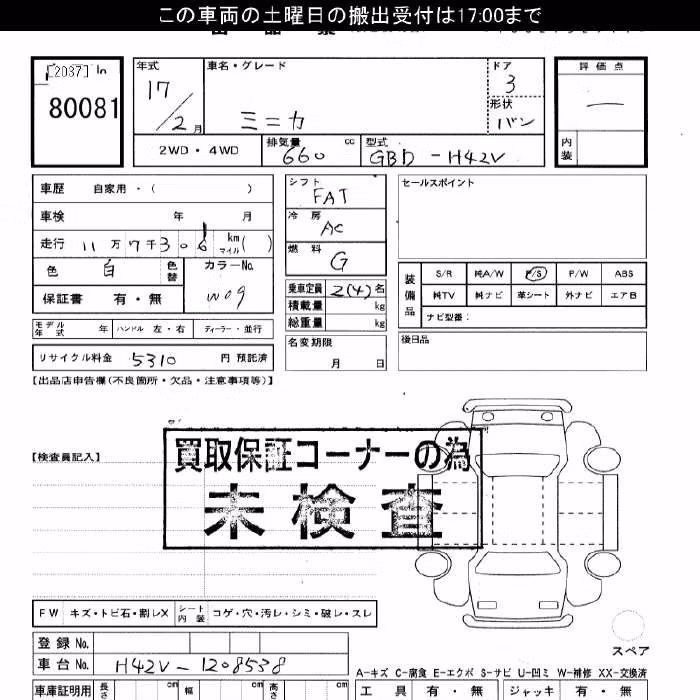 この車両の土曜日の搬出受付は17:00まで
[2037] In
80081
年式
17/2月
車名・グレード
ミニカ
ドア
3
形状
バン
評価点
―
内装
2WD・4WD
排気量 660 cc
型式 GBD-H42V
車歴 自家用・( )
車検 年 月
走行 11万7千306 km マイル ( )
色 白 色替
カラーNo. W09
保証書 有・無
シフト FAT
冷房 AC
燃料 G
乗車定員 2(4)名
積載量 kg
総重量 kg
セールスポイント
装備品
S/R 純A/W P/S P/W ABS
純TV 純ナビ 革シート 外ナビ エアB
ナビ型番:
モデル年式 年 ハンドル 左・右 ディーラー・並行
名変期限
月 日
後日品
リサイクル料金 5310 円 預託済
【出品店申告欄(不良箇所・欠品・注意事項等)】
買取保証コーナーの為
未検査
【検査員記入】
FW キズ・トビ石・割レX シート内装 コゲ・穴・汚レ・シミ・破レ・スレ
スペア
登録No.
車台No. H42V-1208538
A-キズ C-腐食 E-エクボ S-サビ U-凹ミ W-補修 XX-交換済
車庫証明用 長さ cm 幅 cm 高さ cm
工具 有・無 ジャッキ 有・無